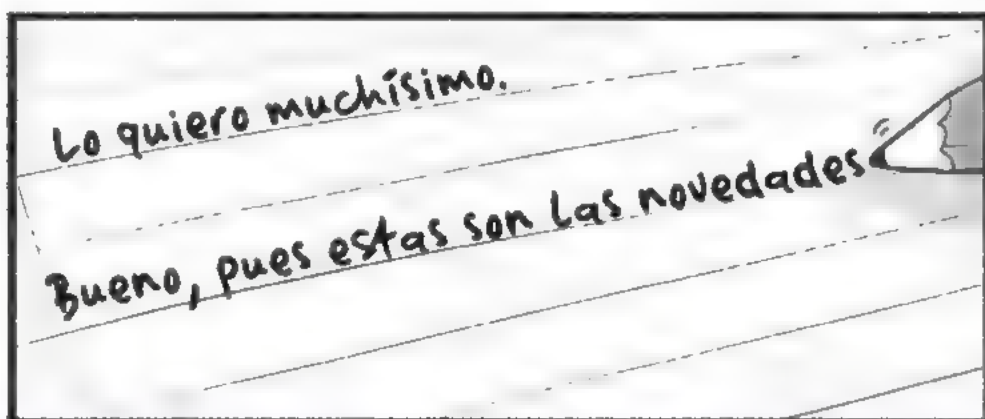 Lo quiero muchísimo.
Bueno, pues estas son las novedades